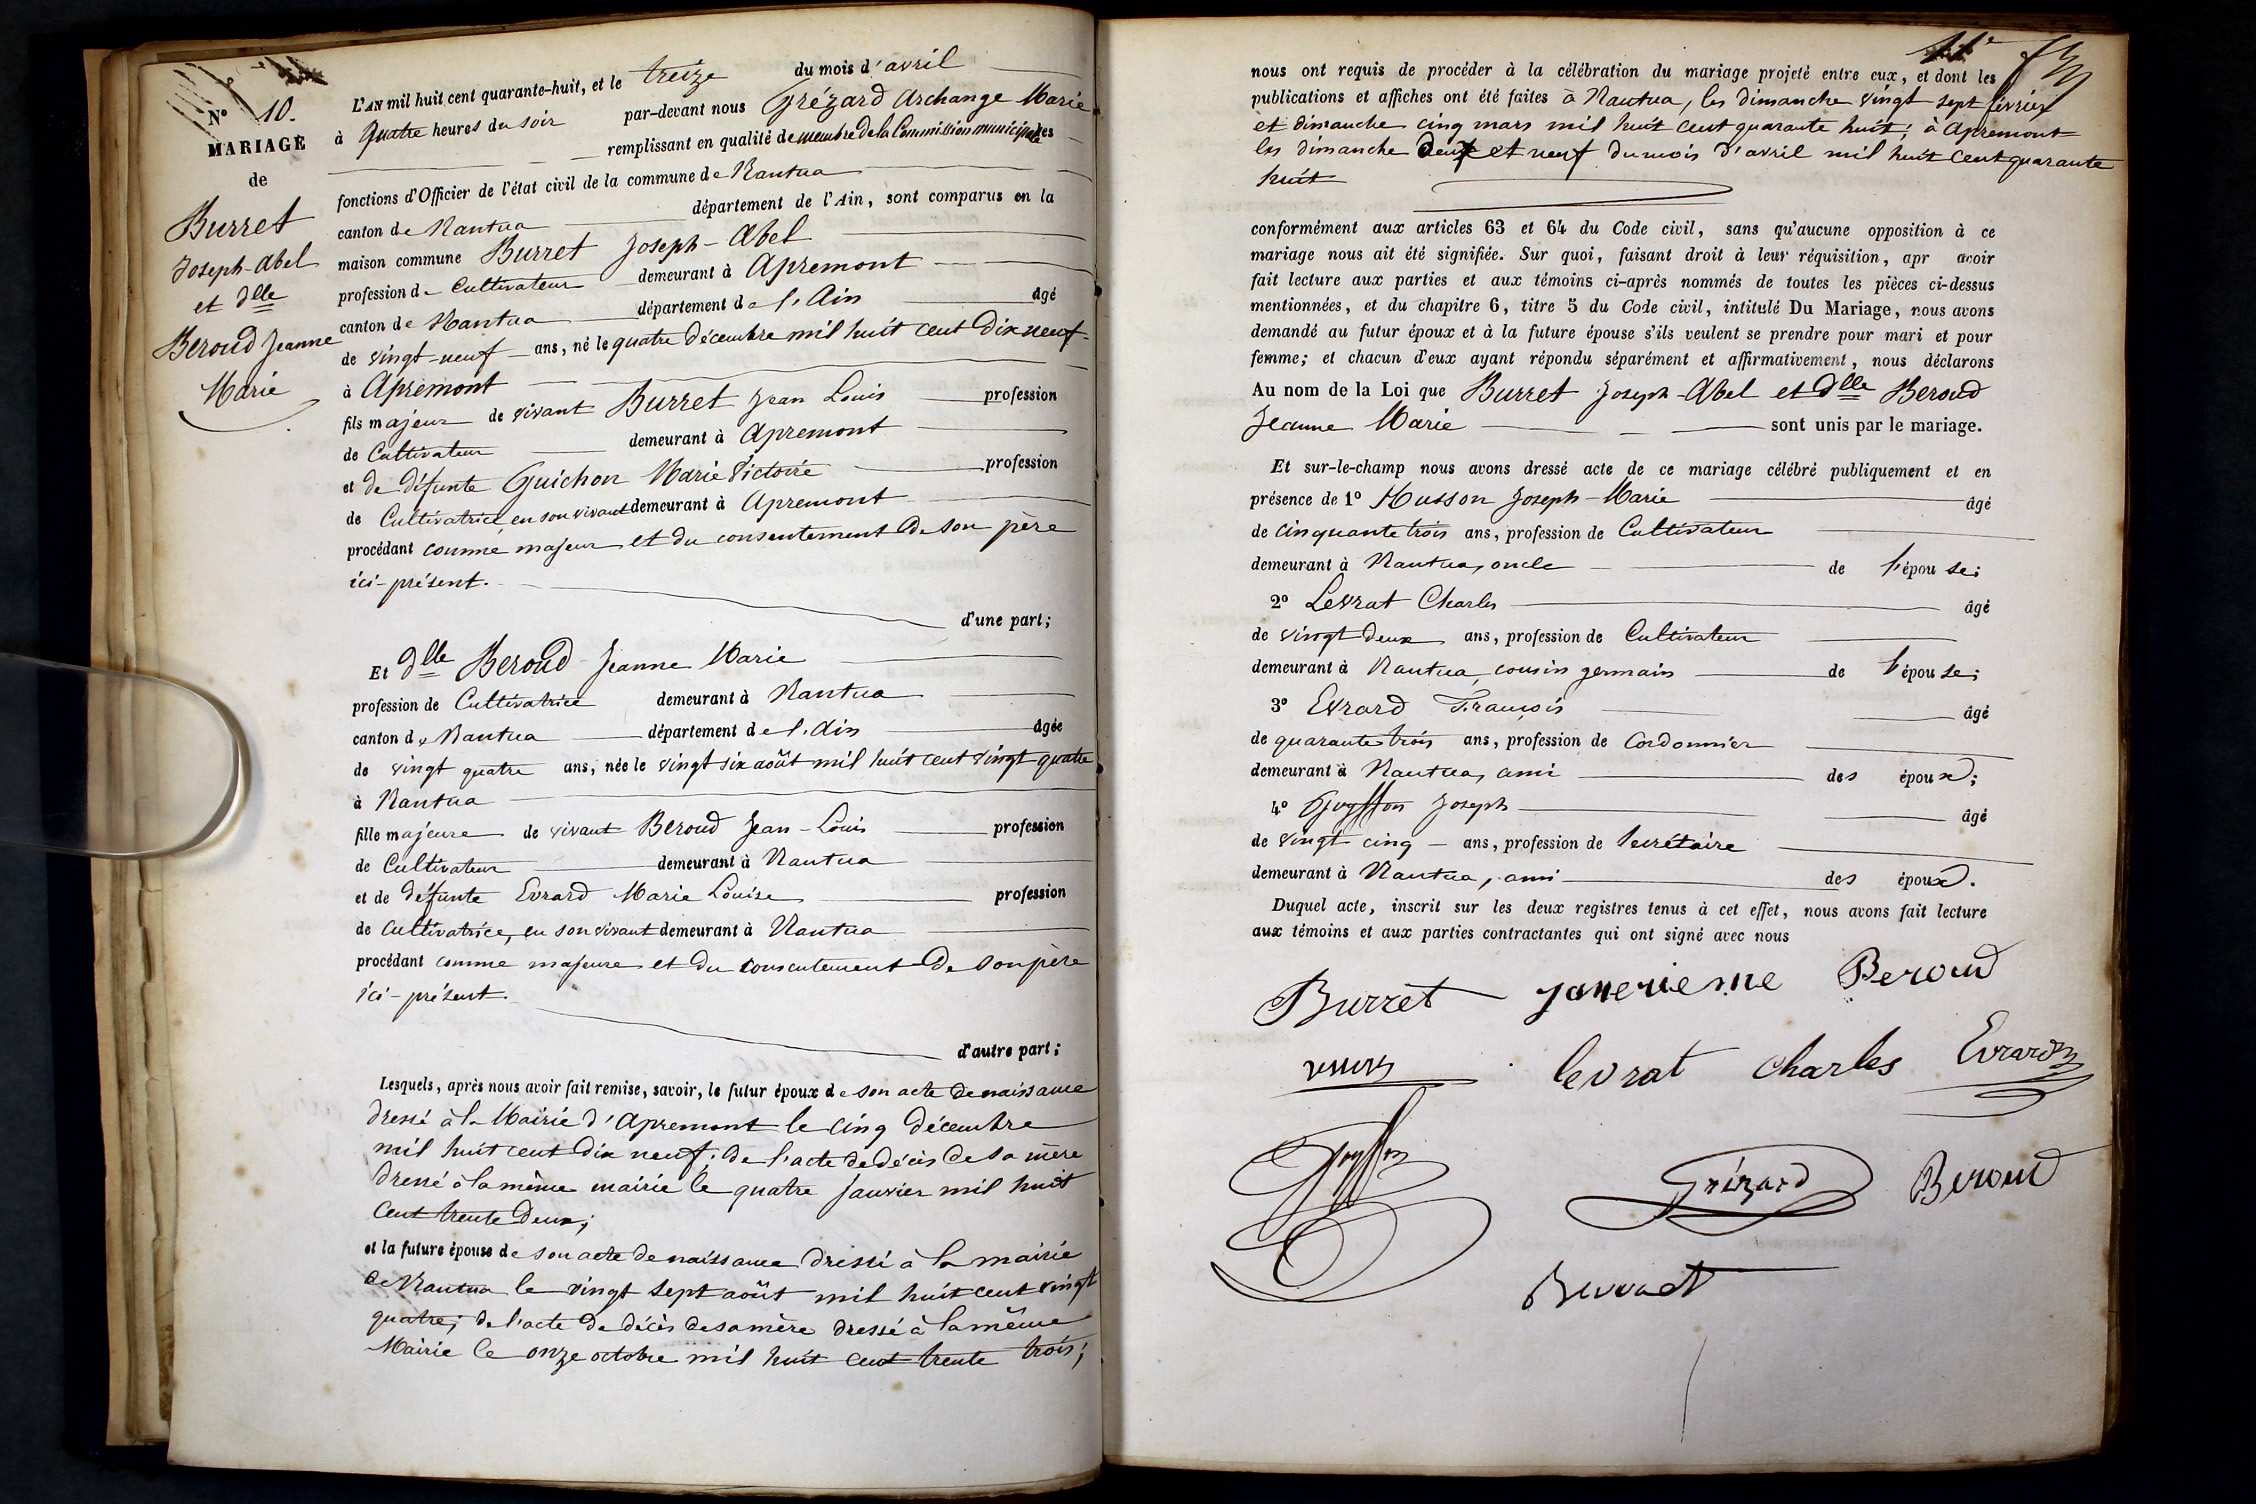 N° 10.
MARIAGE
de
Burret
Joseph-Abel
et Dlle
Beroud Jeanne
Marie
L'AN mil huit cent quarante-huit, et le treize du mois d'avril
à quatre heures du soir par-devant nous Grézard Archange Marie
remplissant en qualité de membre de la Commission municipale les
fonctions d'Officier de l'état civil de la commune de Nantua
canton de Nantua département de l'Ain, sont comparus en la
maison commune Burret Joseph-Abel
profession de Cultivateur demeurant à Apremont
canton de Nantua département de l'Ain âgé
de vingt-neuf ans, né le quatre décembre mil huit cent dix neuf
à Apremont
fils majeur de vivant Burret Jean Louis profession
de Cultivateur demeurant à Apremont
et de défunte Guichon Marie Victoire profession
de Cultivatrice, en son vivant demeurant à Apremont
procédant comme majeur et du consentement de son père
ici-présent.
d'une part;
Et Dlle Beroud Jeanne Marie
profession de Cultivatrice demeurant à Nantua
canton de Nantua département de l'Ain âgée
de vingt quatre ans, née le vingt six août mil huit cent vingt quatre
à Nantua
fille majeure de vivant Beroud Jean-Louis profession
de Cultivateur demeurant à Nantua
et de défunte Evrard Marie Louise profession
de Cultivatrice, en son vivant demeurant à Nantua
procédant comme majeure et du consentement de son père
ici-présent.
d'autre part;
Lesquels, après nous avoir fait remise, savoir, le futur époux de son acte de naissance
dressé à la Mairie d'Apremont le cinq décembre
mil huit cent dix neuf; de l'acte de décès de sa mère
dressé à la même mairie le quatre janvier mil huit
cent trente deux;
et la future épouse de son acte de naissance dressé à la mairie
de Nantua le vingt sept août mil huit cent vingt
quatre; de l'acte de décès de sa mère dressé à la même
Mairie le onze octobre mil huit cent trente trois;
11e
nous ont requis de procéder à la célébration du mariage projeté entre eux, et dont les
publications et affiches ont été faites à Nantua, les dimanche vingt sept février
et dimanche cinq mars mil huit cent quarante huit; à Apremont
les dimanche deux et neuf du mois d'avril mil huit cent quarante
huit
conformément aux articles 63 et 64 du Code civil, sans qu'aucune opposition à ce
mariage nous ait été signifiée. Sur quoi, faisant droit à leur réquisition, apr avoir
fait lecture aux parties et aux témoins ci-après nommés de toutes les pièces ci-dessus
mentionnées, et du chapitre 6, titre 5 du Code civil, intitulé Du Mariage, nous avons
demandé au futur époux et à la future épouse s'ils veulent se prendre pour mari et pour
femme; et chacun d'eux ayant répondu séparément et affirmativement, nous déclarons
Au nom de la Loi que Burret Joseph-Abel et Dlle Beroud
Jeanne Marie sont unis par le mariage.
Et sur-le-champ nous avons dressé acte de ce mariage célébré publiquement et en
présence de 1° Husson Joseph-Marie âgé
de cinquante trois ans, profession de Cultivateur
demeurant à Nantua, oncle de l'épouse;
2° Levrat Charles âgé
de vingt deux ans, profession de Cultivateur
demeurant à Nantua, cousin germain de l'épouse;
3° Evrard François âgé
de quarante trois ans, profession de Cordonnier
demeurant à Nantua, ami des époux;
4° Goyffon Joseph âgé
de vingt cinq ans, profession de Secrétaire
demeurant à Nantua, ami des époux.
Duquel acte, inscrit sur les deux registres tenus à cet effet, nous avons fait lecture
aux témoins et aux parties contractantes qui ont signé avec nous
Burret Beroud
levrat Charles Evrard
Goyffon Grézard Beroud